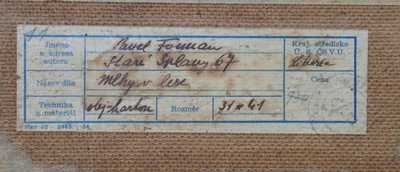 Jméno a adresa autora
Pavel Forman
Staré Splavy 67
Kraj. středisko Ú. S. ČSVU.
Liberec
Název díla
Mlhy v lese
Cena
Technika a materiál
olej-karton
Rozměr
31 x 41